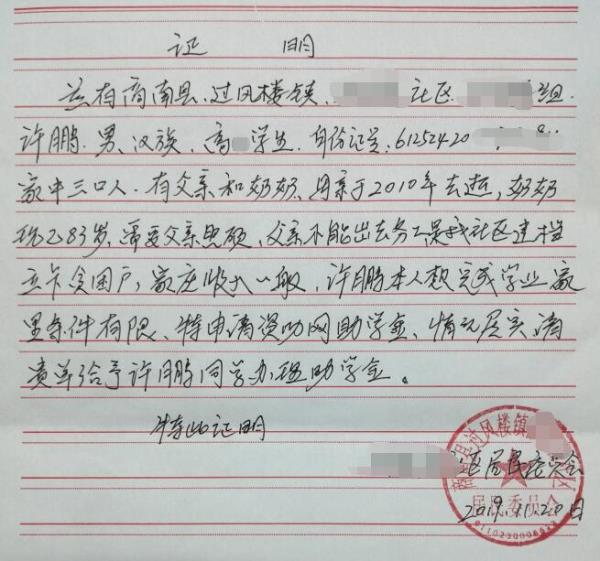 证 明
兹有商南县、过风楼镇、 社区 组.
许鹏. 男、汉族、高 学生. 身份证号: 61252420
家中三口人. 有父亲和奶奶. 母亲于2010年去逝, 奶奶
现已83岁. 需要父亲照顾、父亲不能出去务工是我社区建档
立卡贫困户, 家庭收入一般, 许鹏本人想完成学业家
里条件有限、特申请资助网助学金、情况属实请
贵单给予许鹏同学办理助学金。
特此证明
社区居民委员会
2019.11.20日
过风楼镇 区
居民委员会